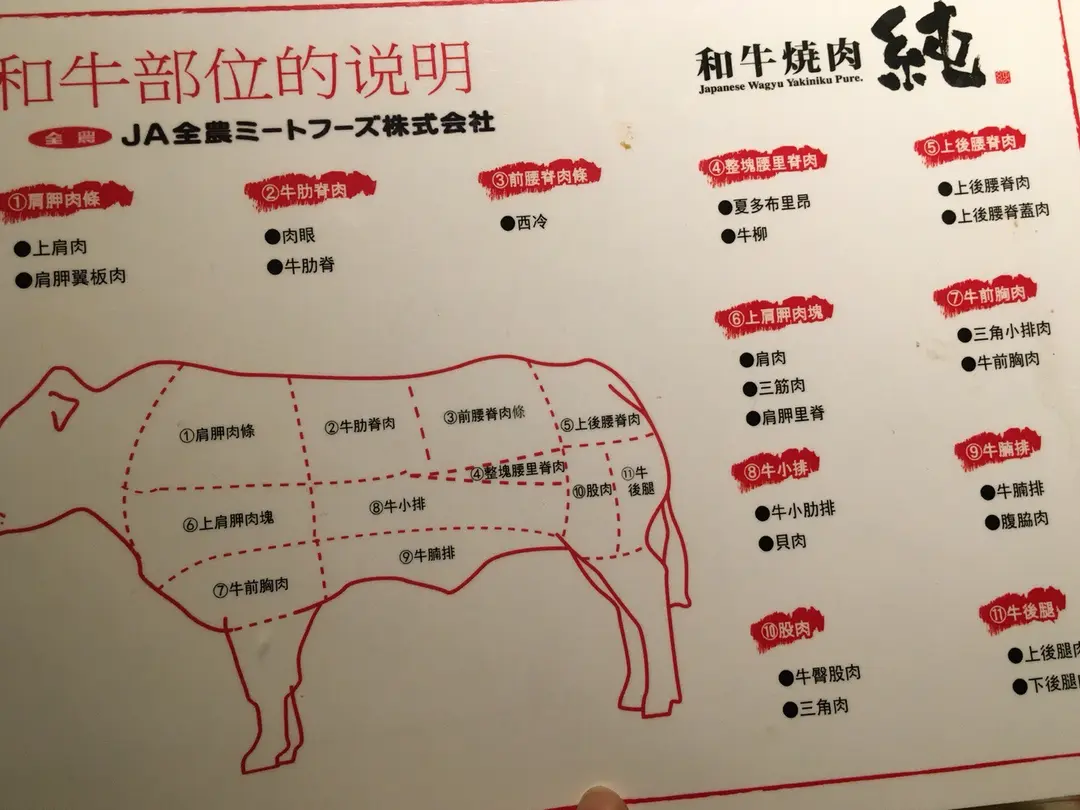 和牛部位的说明
全農 JA全農ミートフーズ株式会社
和牛焼肉 純
Japanese Wagyu Yakiniku Pure.
①肩胛肉條
●上肩肉
●肩胛翼板肉
②牛肋脊肉
●肉眼
●牛肋脊
③前腰脊肉條
●西冷
④整塊腰里脊肉
●夏多布里昂
●牛柳
⑤上後腰脊肉
●上後腰脊肉
●上後腰脊蓋肉
⑥上肩胛肉塊
●肩肉
●三筋肉
●肩胛里脊
⑦牛前胸肉
●三角小排肉
●牛前胸肉
⑧牛小排
●牛小肋排
●貝肉
⑨牛腩排
●牛腩排
●腹脇肉
⑩股肉
●牛臀股肉
●三角肉
⑪牛後腿
●上後腿肉
●下後腿
①肩胛肉條
②牛肋脊肉
③前腰脊肉條
④整塊腰里脊肉
⑤上後腰脊肉
⑥上肩胛肉塊
⑦牛前胸肉
⑧牛小排
⑨牛腩排
⑩股肉
⑪牛
後腿